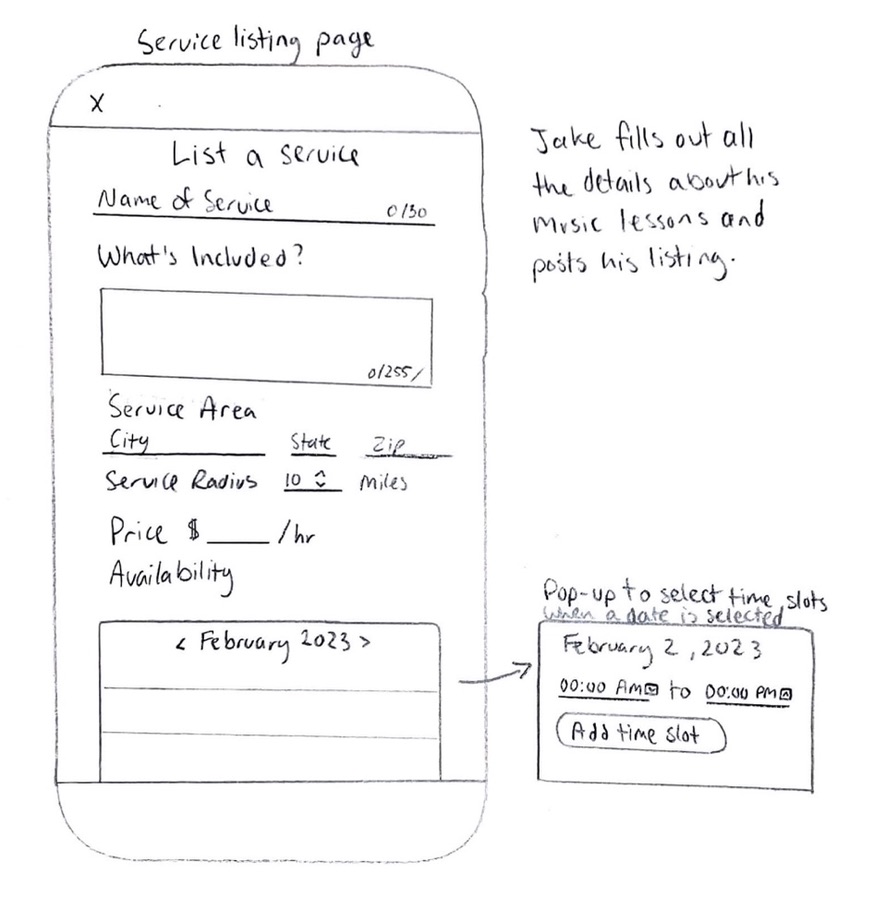 Service listing page
X
List a service
Name of Service 0/30
What's Included?
0/255
Service Area
City State Zip
Service Radius 10 miles
Price $ ____ /hr
Availability
< February 2023 >
Jake fills out all
the details about his
music lessons and
posts his listing.
Pop-up to select time slots
when a date is selected
February 2, 2023
00:00 AM to 00:00 PM
Add time slot